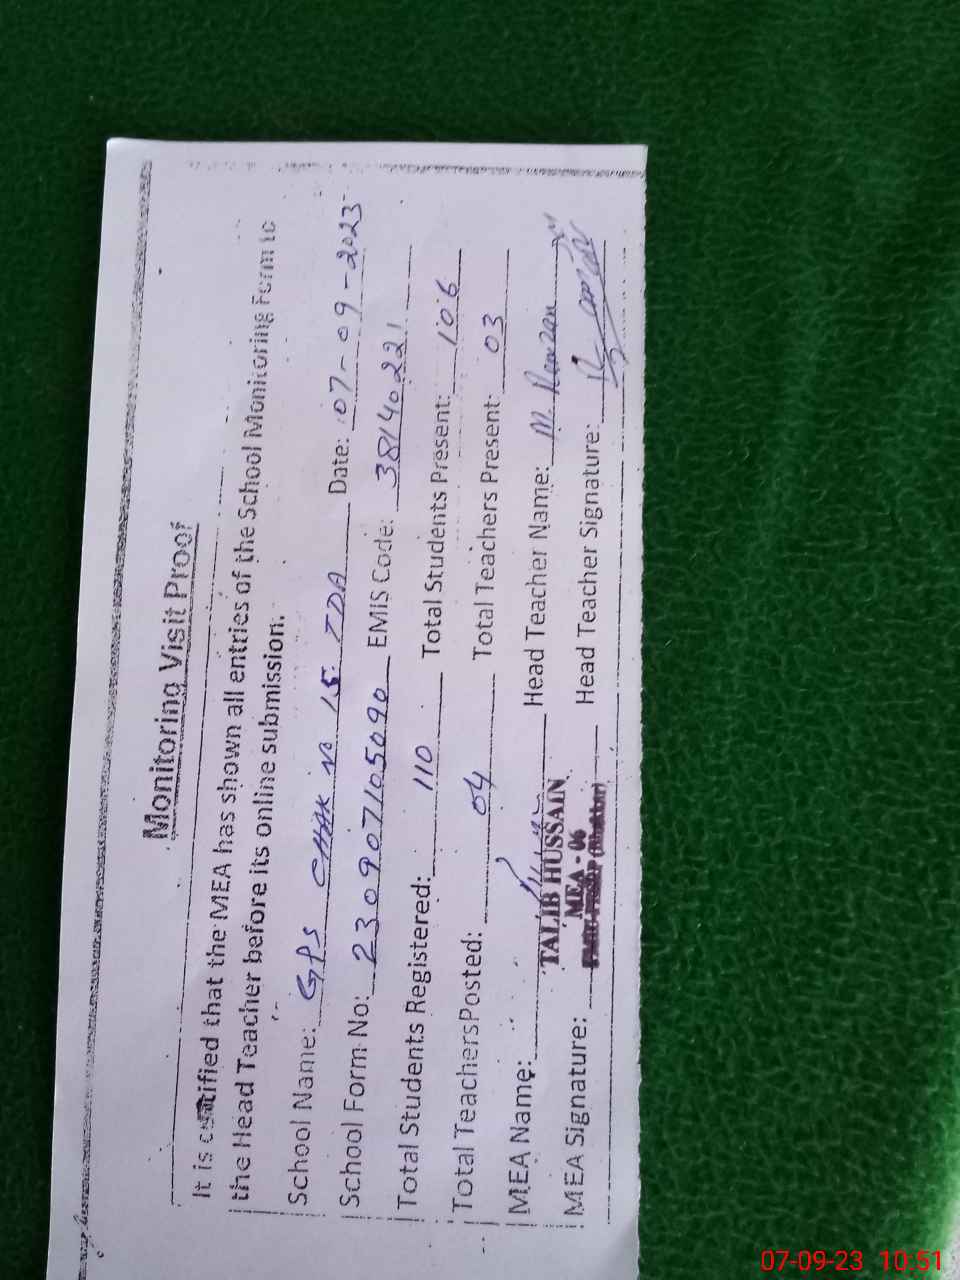 Monitoring Visit Proof
It is certified that the MEA has shown all entries of the School Monitoring Form to
the Head Teacher before its online submission.
School Name: GPS CHAK No 15 TDA Date: 07-09-2023
School Form No: 230907105090 EMIS Code: 38140221
Total Students Registered: 110 Total Students Present: 106
Total Teachers Posted: 04 Total Teachers Present: 03
MEA Name: Head Teacher Name: M. Ramzan
TALIB HUSSAIN
MEA - 06
MEA Signature: Head Teacher Signature:
07-09-23 10:51